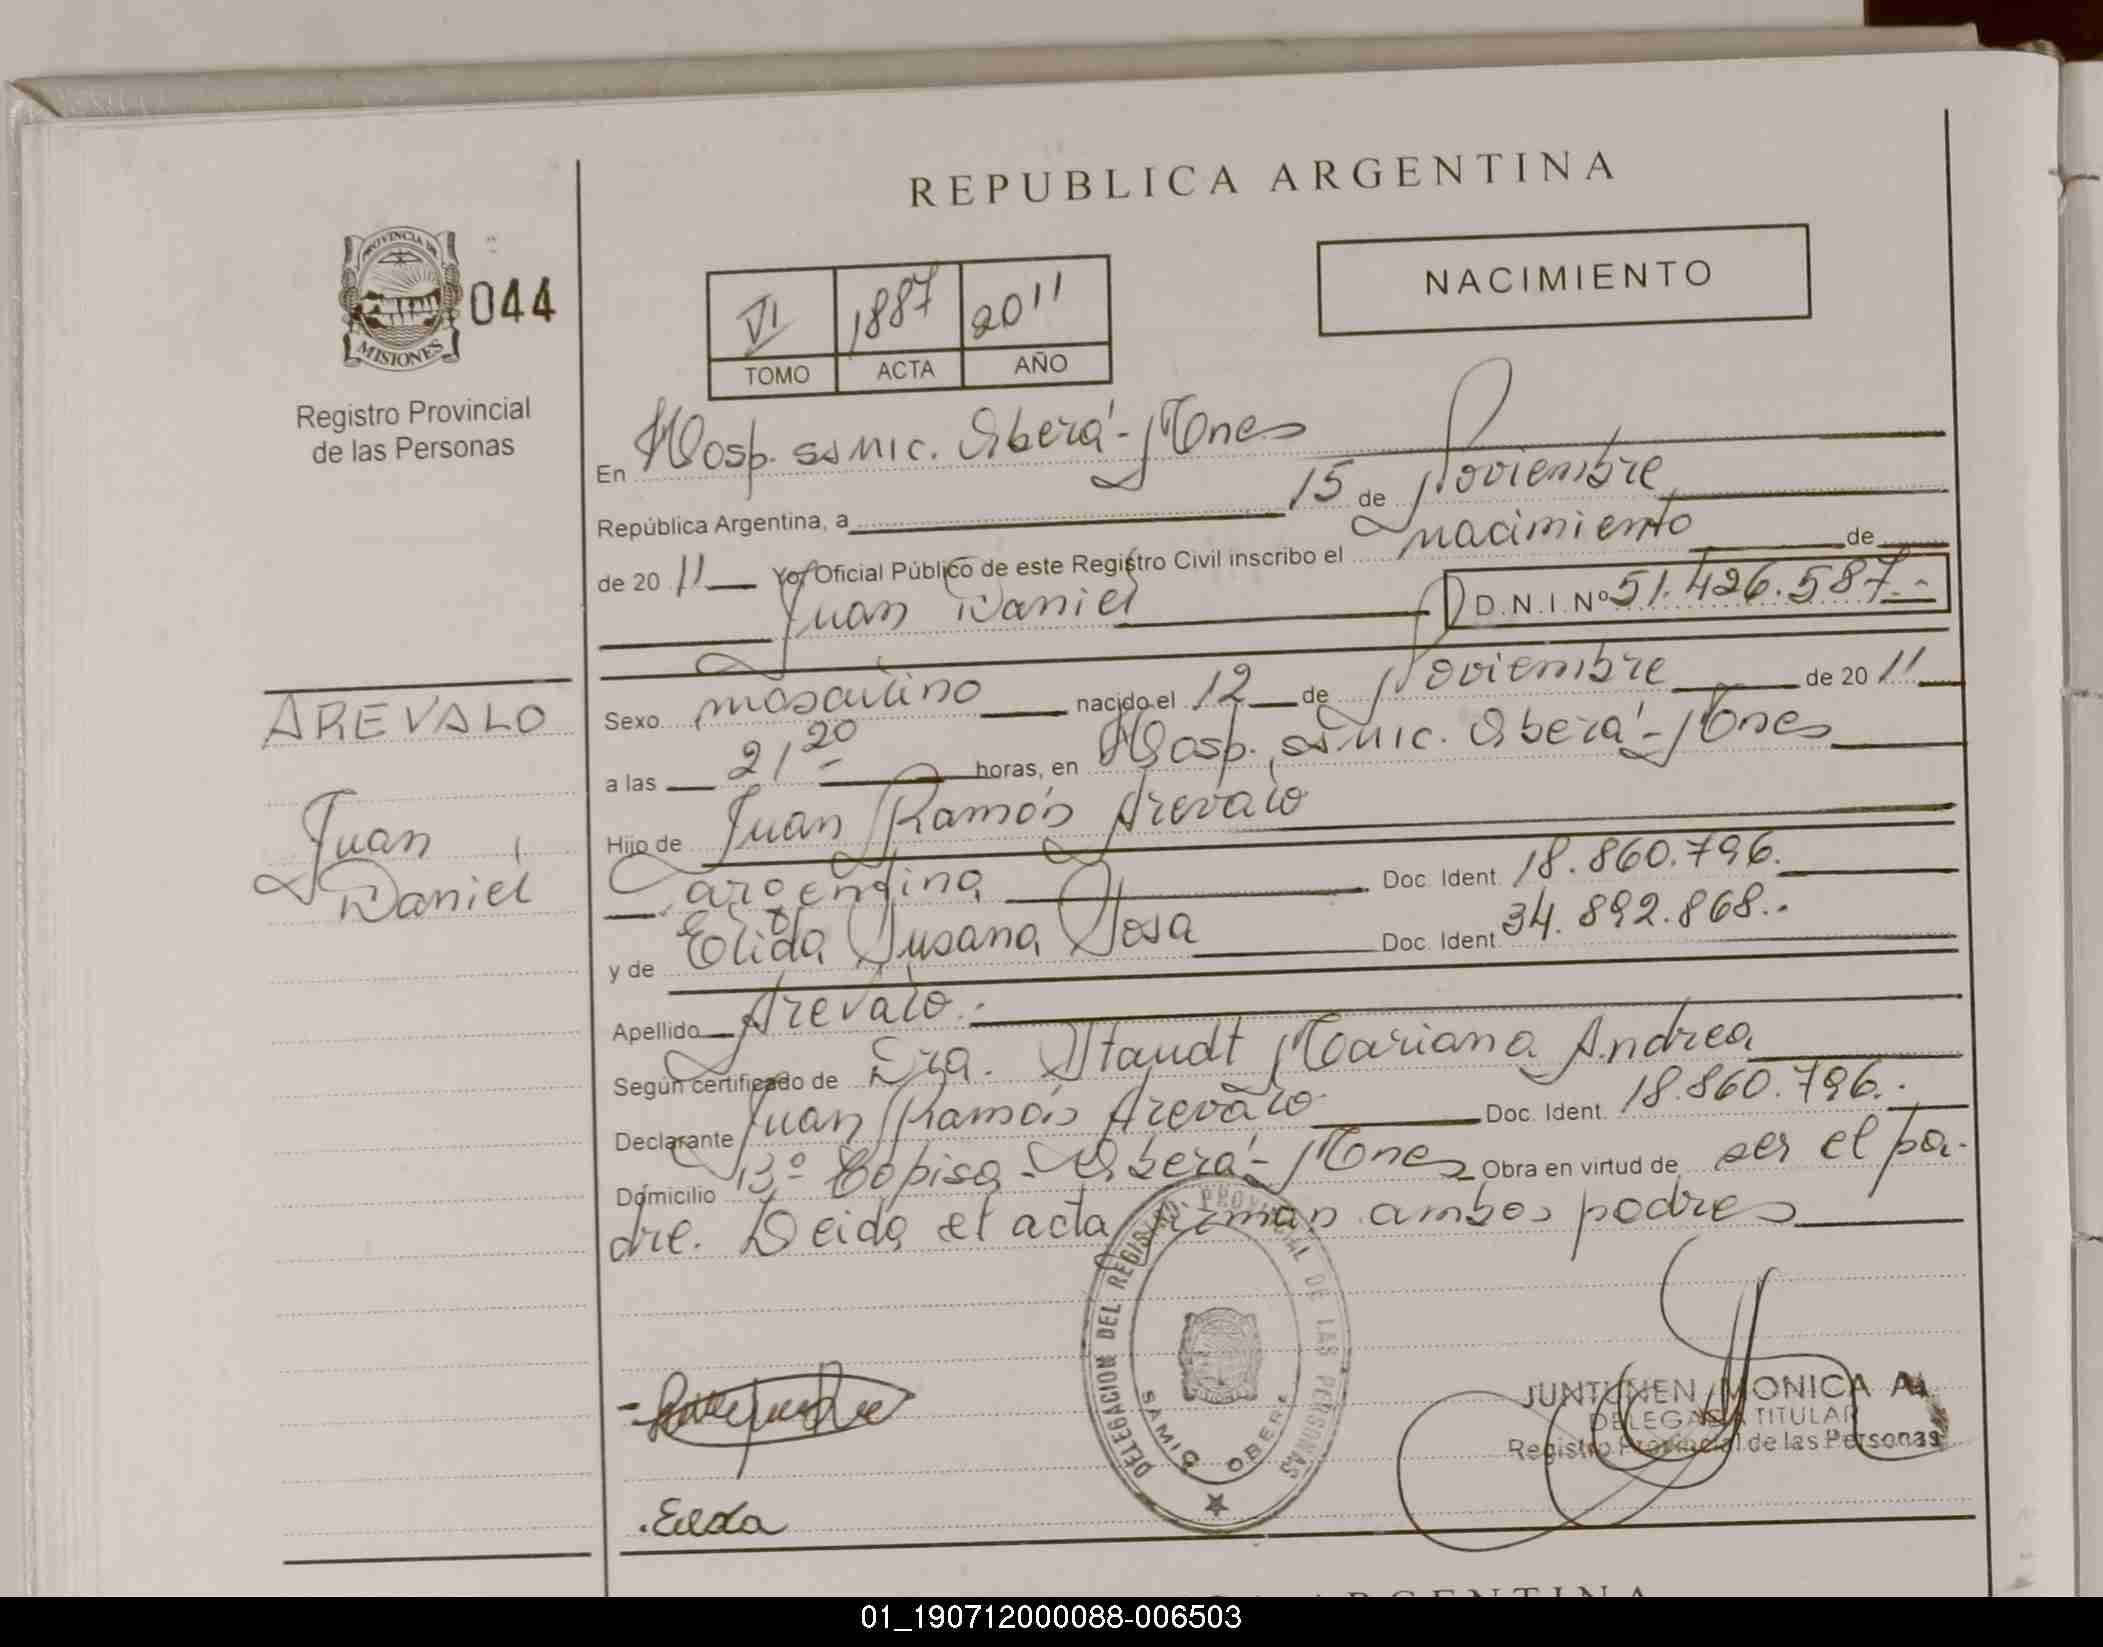 REPUBLICA ARGENTINA
NACIMIENTO
PROVINCIA DE
MISIONES
044
Registro Provincial
de las Personas
VI 1887 2011
TOMO ACTA AÑO
En Hosp. SAMIC. Oberá - Mnes
República Argentina, a 15 de Noviembre
de 2011 Yo, Oficial Público de este Registro Civil inscribo el nacimiento de
Juan Daniel D.N.I. Nº 51.426.587.-
Sexo masculino nacido el 12 de Noviembre de 2011
a las 21 20 horas, en Hosp. SAMIC. Oberá - Mnes
Hijo de Juan Ramón Arevalo
argentina Doc. Ident. 18.860.796.
y de Elida Susana Sosa Doc. Ident. 34.892.868.-
Apellido Arevalo.-
Según certificado de Dra. Staudt Mariana Andrea
Declarante Juan Ramón Arevalo Doc. Ident. 18.860.796.-
Domicilio Bº Copisa - Oberá - Mnes Obra en virtud de ser el pa-
dre. Leida el acta firman ambos padres
AREVALO
Juan
Daniel
DELEGACION DEL REGISTRO PROVINCIAL DE LAS PERSONAS
SAMIC OBERA
JUNTUNEN MONICA A.
DELEGADA TITULAR
Registro Provincial de las Personas
01_190712000088-006503